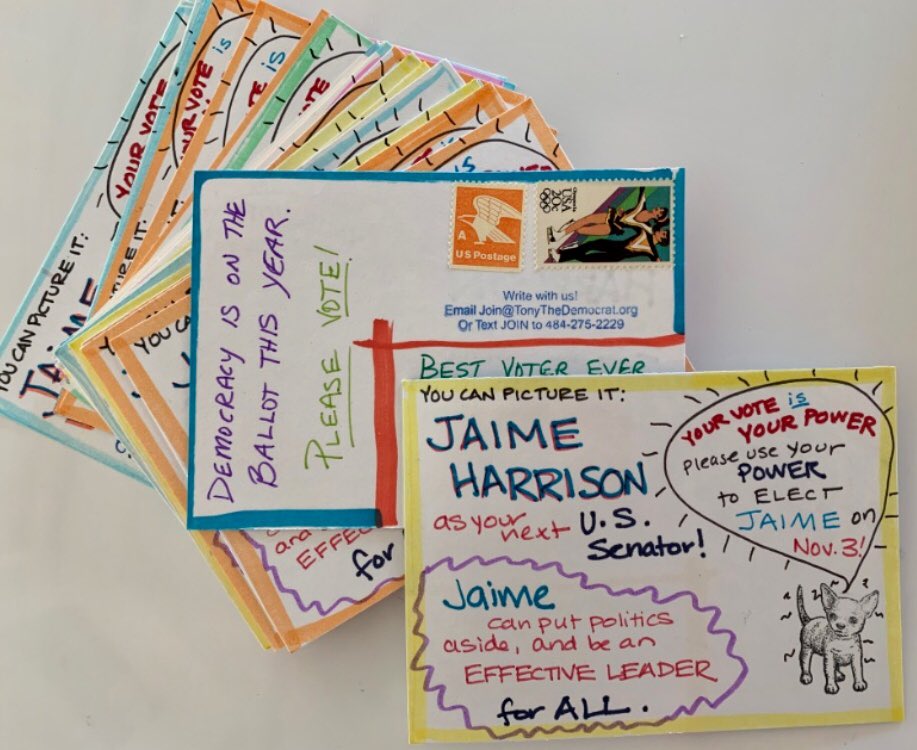 YOUR VOTE
YOU CAN PICTURE IT:
JAIME
UR VOTE is
URE IT:
VOTE is
TE
is
POWER
YOU CAN
DEMOCRACY IS ON THE
BALLOT THIS YEAR.
PLEASE VOTE!
A
US Postage
USA
20c
Write with us!
Email Join@TonyTheDemocrat.org
Or Text JOIN to 484-275-2229
BEST VOTER EVER
and
EFFEC
for
YOU CAN PICTURE IT:
JAIME
HARRISON
as your
next U.S.
Senator!
YOUR VOTE is
YOUR POWER
please use your
POWER
to ELECT
JAIME on
Nov. 3!
Jaime
can put politics
aside, and be an
EFFECTIVE LEADER
for ALL.